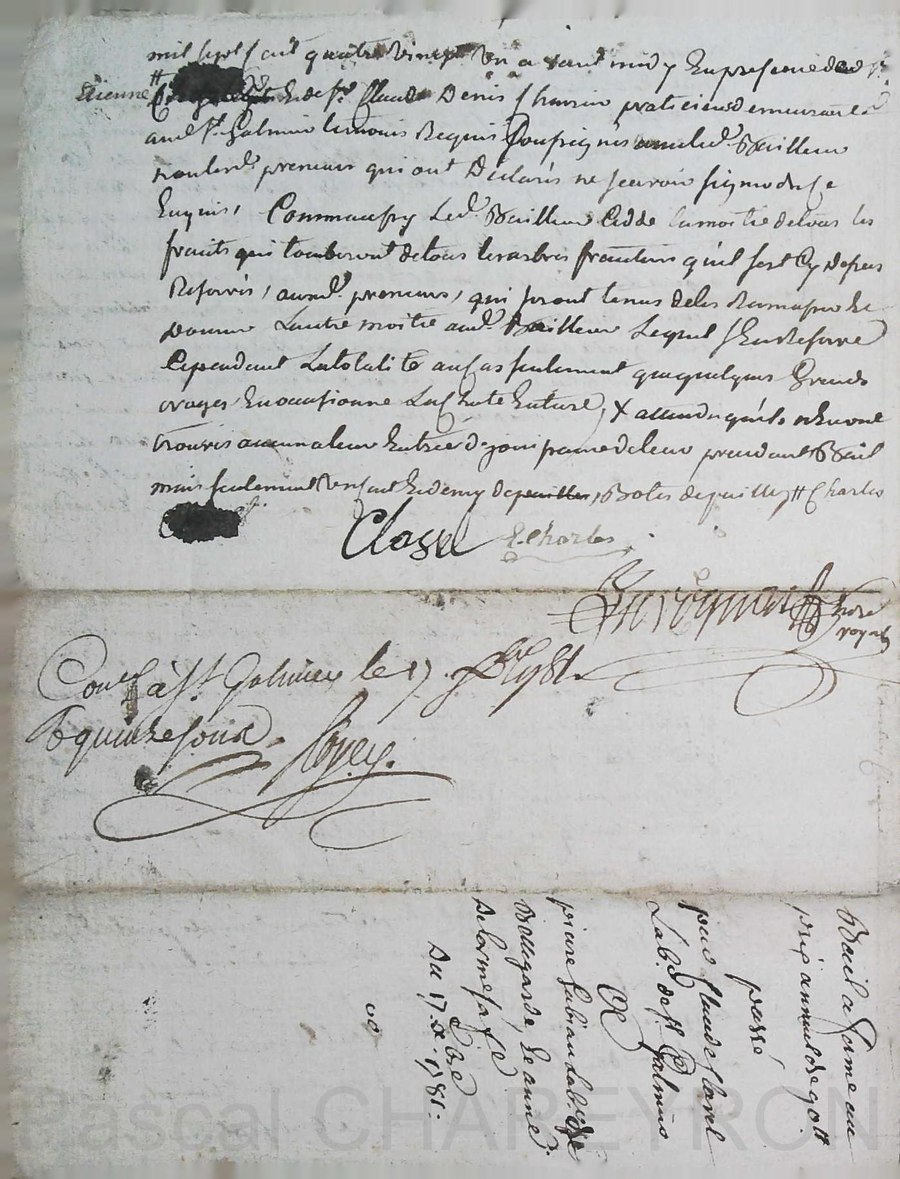 mil sept cent quatre vingt un avant midy En presence de
Etienne # & de Sr. Claude Denis praticien demeurant
aud. St. Galmier temoins Requis soussignés avec led. Bailleur
non lesd. preneurs qui ont Déclarés ne sçavoir signer de ce
Enquis, Comme aussy Led. Bailleur Cedde la moitié de tous les
fruits qui tomberont de tous les arbres fruitiers qu'il s'est Cy depuis
Reservés, auxd. preneurs, qui seront tenus de les Ramasser &
Donner Lautre moitié aud. Bailleur Lequel s'En Reserve
Cependant La totalité au cas seulement que quelques Grands
orages En occasionne La Chute Entiere, & attendu qu'ils n'En ont
trouvés aucun a leur Entrée de jouissance de leur precedant Bail
mais seulement Cent & demy de Botes de paille, # Charles
Clavel E. Charles
Nore
royal
Con.lé à St. Galmier le 17. 9bre 1781.
R quinze sous
Bail a ferme au
prix annuel de 90 tt
passé
par Claude Clavel
Lab. de St. Galmier
à
pierre Lab. de
Jeanne
Delorme sa fe
Du 17. 9bre 1781.